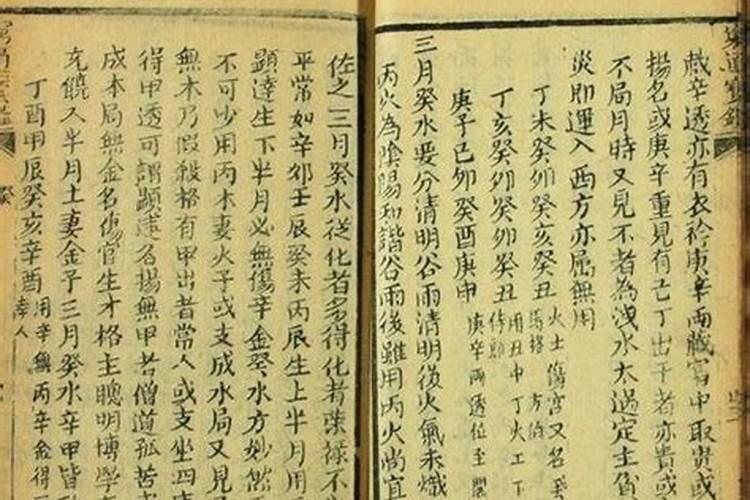 蔵辛透亦有衣衿庚辛両藏富中取貴或
揚名或庚辛重見有己丁出干者亦貴或
不局月時又見不者為洩水太過定主傷
炎即運入西方亦属無用
丁未癸卯癸亥癸丑 火土傷宫又名
丁亥癸卯癸卯癸丑 用丑中丁火工下 侍郎
庚子己卯癸酉庚申 庚辛両透位至
三月癸水要分清明谷雨清明後火氣未熾
丙火為陰陽和諧谷雨後雖用丙火尚宜
佐之三月癸水從化者多得化者葉禄不
平常如辛卯壬辰癸未丙辰生上半月用
顕達生下半月必無傷辛金癸水方妙然
不可少用丙木妻火子或支成水局又見
無木乃假殺格有甲出者常人或支坐四
得甲透可謂顕達名揚無甲者僧道孤苦
成本局無金名傷官生才格主聰明博學
充饒又半月土妻金子三月癸水辛甲皆
丁酉甲辰癸亥辛酉 用辛無丙辛金得 孝人
癸